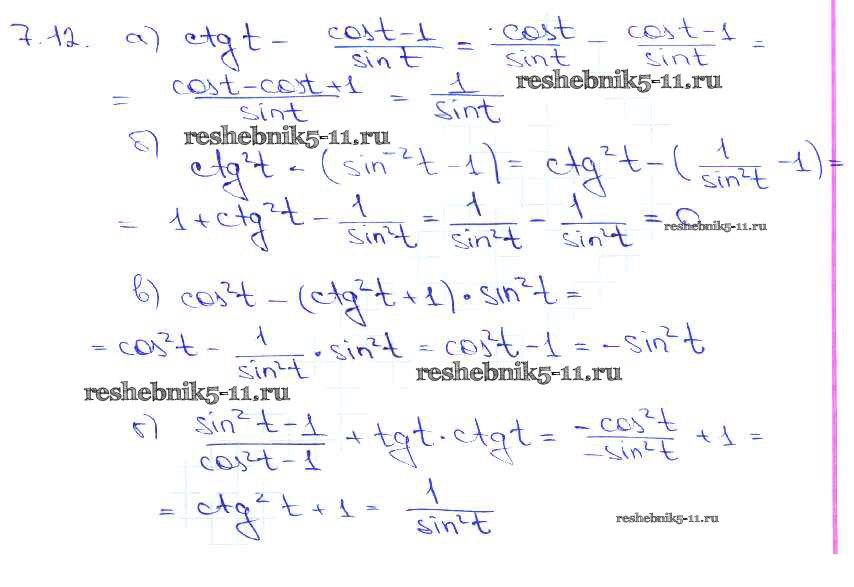 7.12. а) ctg t - (cost-1)/sint = cost/sint - (cost-1)/sint =
reshebnik5-11.ru
= (cost-cost+1)/sint = 1/sint
reshebnik5-11.ru
б)
ctg²t - (sin⁻²t - 1) = ctg²t - (1/sin²t - 1) =
= 1 + ctg²t - 1/sin²t = 1/sin²t - 1/sin²t = 0
reshebnik5-11.ru
в) cos²t - (ctg²t + 1) · sin²t =
= cos²t - 1/sin²t · sin²t = cos²t - 1 = -sin²t
reshebnik5-11.ru
reshebnik5-11.ru
г) (sin²t - 1)/(cos²t - 1) + tgt · ctgt = -cos²t/-sin²t + 1 =
= ctg²t + 1 = 1/sin²t
reshebnik5-11.ru